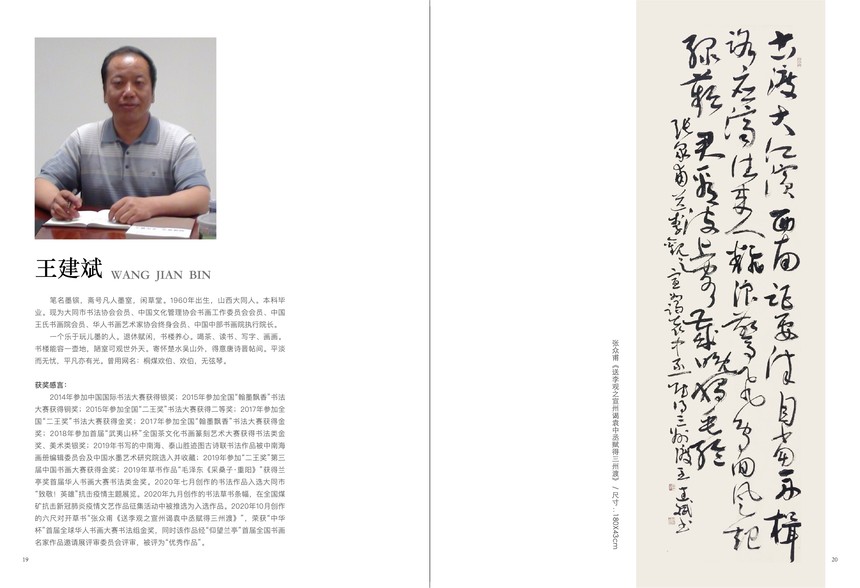 王建斌 WANG JIAN BIN
笔名墨锁,斋号凡人墨室,闲草堂。1960年出生,山西大同人。本科毕
业。现为大同市书法协会会员、中国文化管理协会书画工作委员会会员、中国
王氏书画院会员、华人书画艺术家协会终身会员、中国中部书画院执行院长。
一个乐于玩儿墨的人。退休赋闲,书楼养心。喝茶、读书、写字、画画。
书楼能容一壶地,陋室可观世外天。寄怀楚水吴山外,得意唐诗晋帖间。平淡
而无忧,平凡亦有光。曾用网名:桐煤欢伯,欢伯,无弦琴。
获奖感言:
2014年参加中国国际书法大赛获得银奖;2015年参加全国“翰墨飘香”书法
大赛获得铜奖;2015年参加全国“二王奖”书法大赛获得二等奖;2017年参加全
国“二王奖”书法大赛获得金奖;2017年参加全国“翰墨飘香”书法大赛获得金
奖;2018年参加首届“武夷山杯”全国茶文化书画篆刻艺术大赛获得书法类金
奖、美术类银奖;2019年书写的中南海、泰山胜迹图古诗联书法作品被中南海
画册编辑委员会及中国水墨艺术研究院选入并收藏;2019年参加“二王奖”第三
届中国书画大赛获得金奖;2019年草书作品“毛泽东《采桑子·重阳》”获得兰
亭奖首届华人书画大赛书法类金奖。2020年七月创作的书法作品入选大同市
“致敬!英雄”抗击疫情主题展览。2020年九月创作的书法草书条幅,在全国煤
矿抗击新冠肺炎疫情文艺作品征集活动中被推选为入选作品。2020年10月创作
的六尺对开草书“张众甫《送李观之宣州谒袁中丞赋得三州渡》”,荣获“中华
杯”首届全球华人书画大赛书法组金奖,同时该作品经“仰望兰亭”首届全国书画
名家作品邀请展评审委员会评审,被评为“优秀作品”。
19
张众甫《送李观之宣州谒袁中丞赋得三州渡》 / 尺寸:180X43cm
古渡大江滨西南距要津自当舟楫
路应济往来人翻浪惊飞鸟回风起
绿蘋君看波上客岁晚独垂纶
20